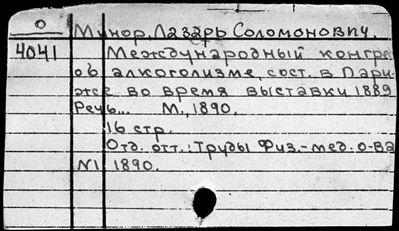 О Минор, Лазарь Соломонович.
4041 Международный конгре
об алкоголизме, сост. в Пари-
же во время выставки 1889
Речь... М., 1890.
16 стр.
Отд. отт.: Труды Физ.-мед. о-ва
N1 1890.